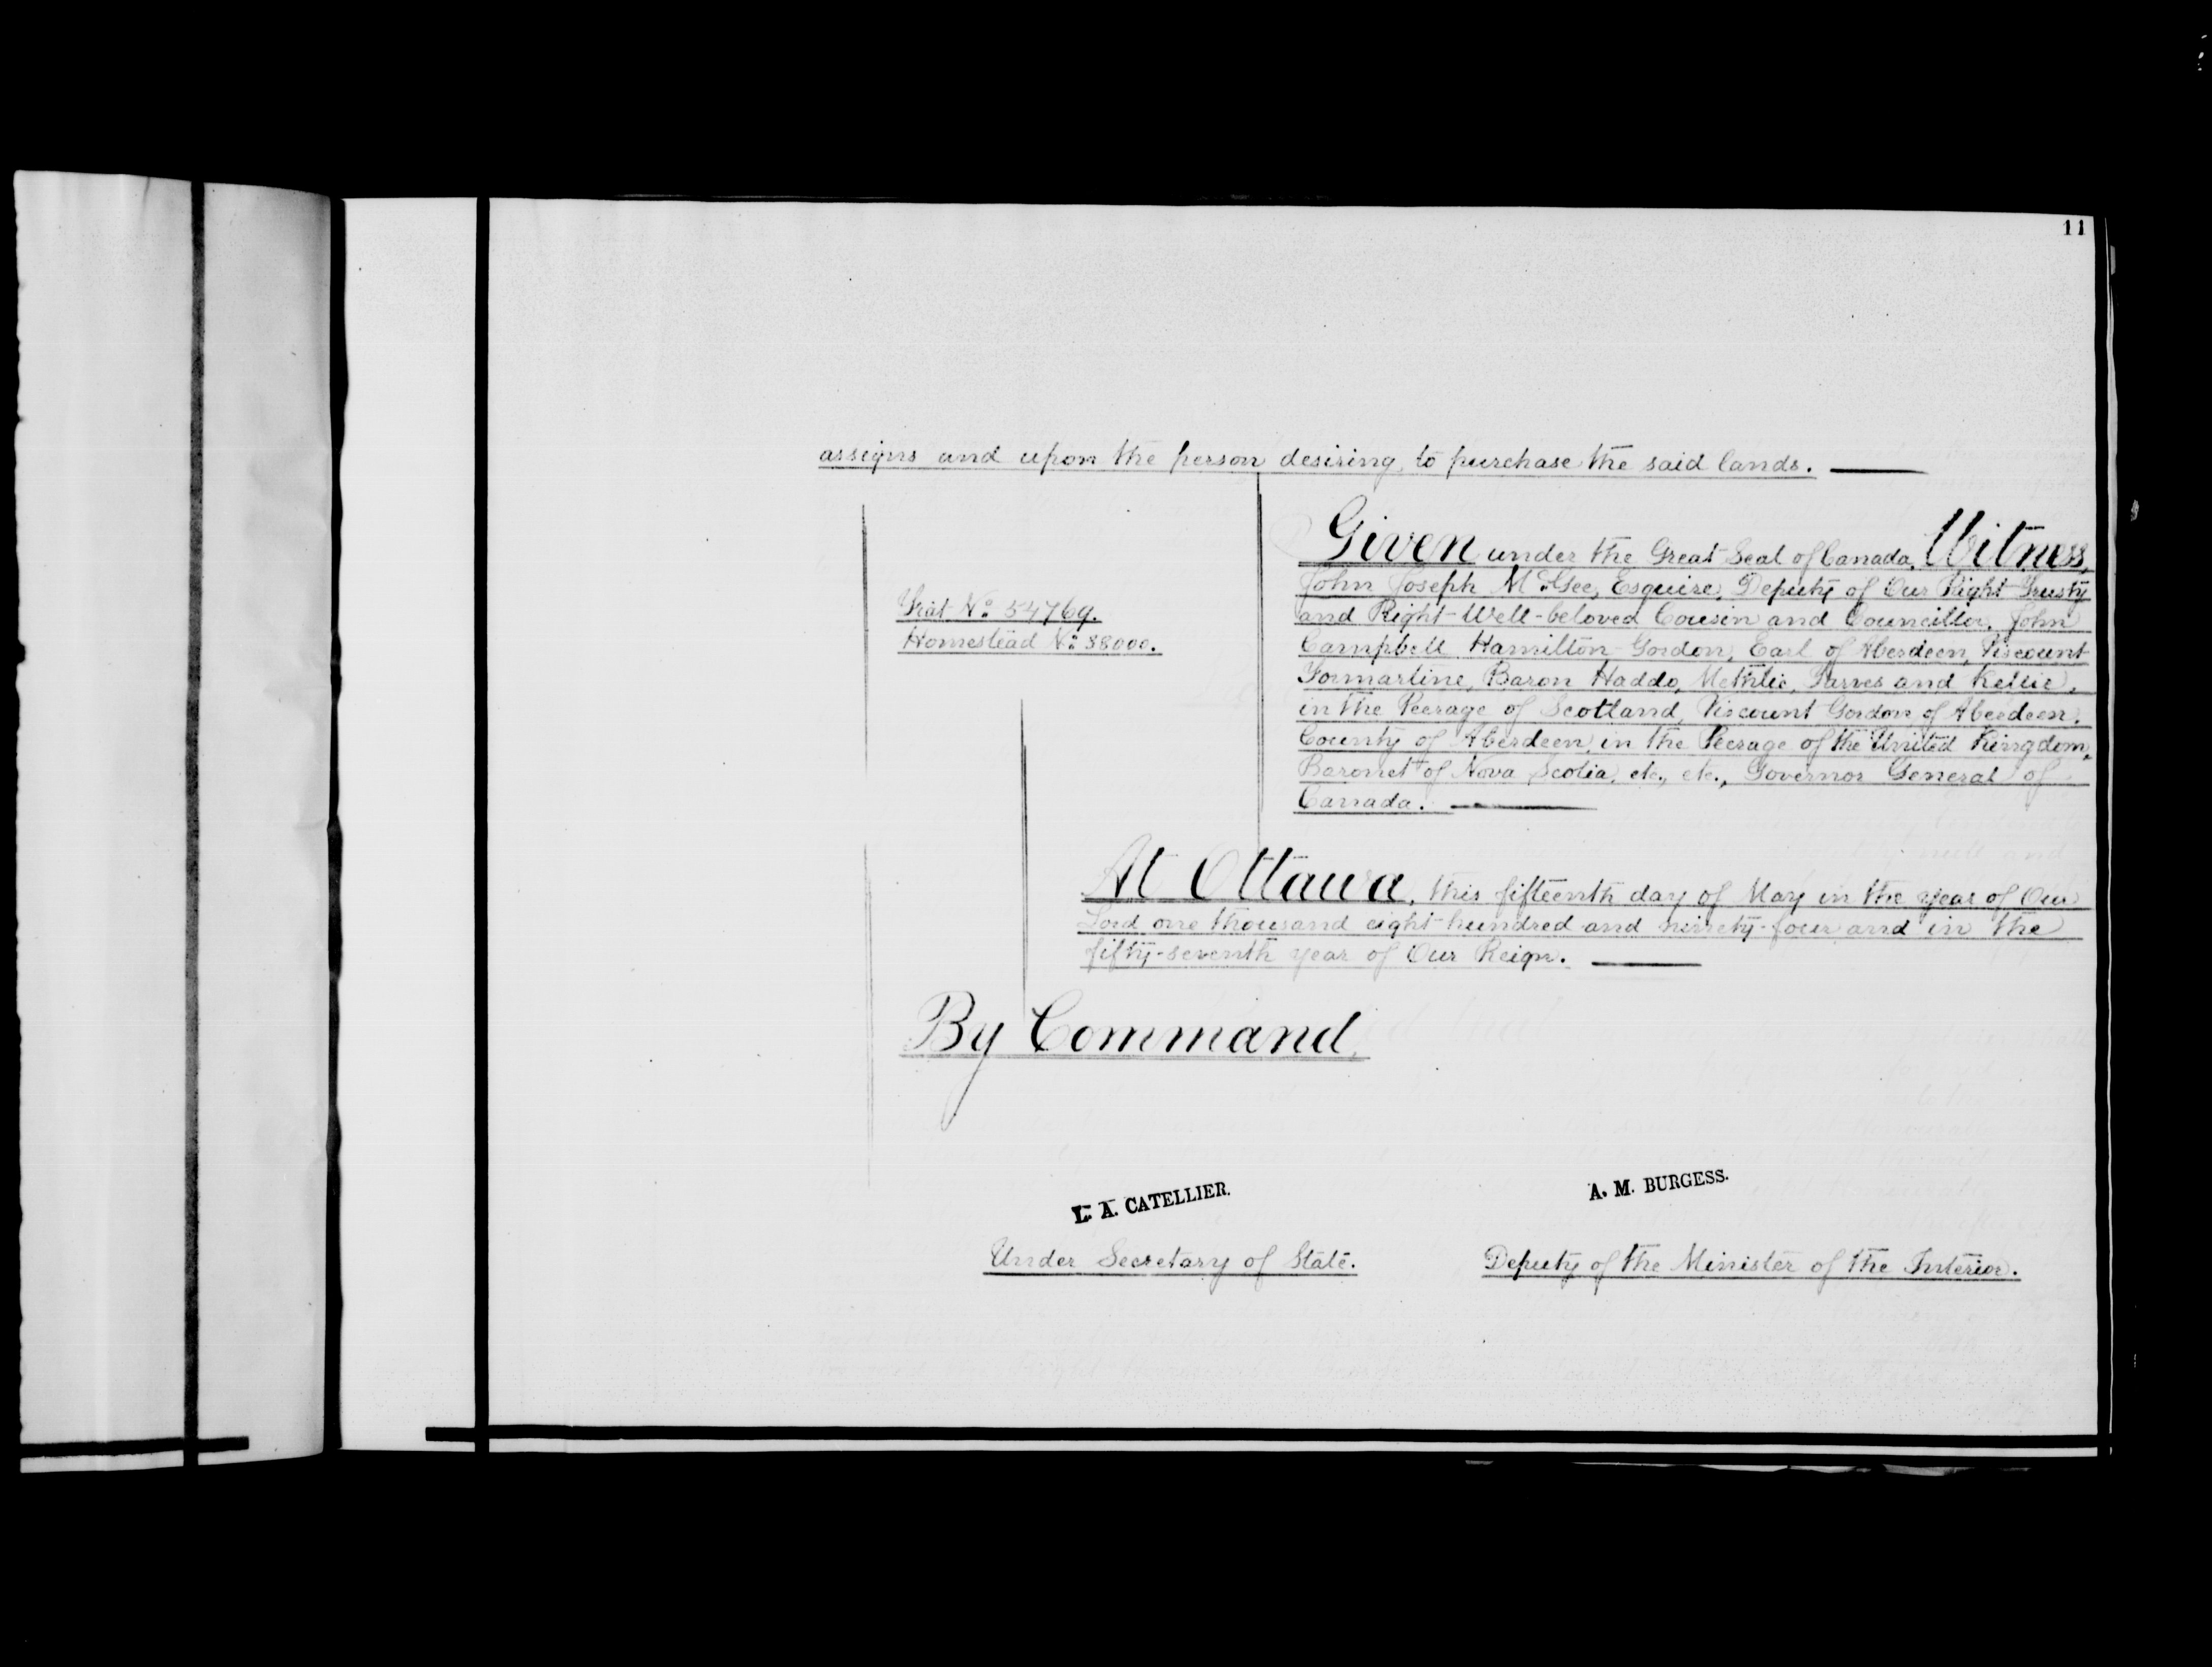 11
assigns and upon the person desiring to purchase the said lands.
Given under the Great Seal of Canada. Witness,
John Joseph McGee, Esquire, Deputy of Our Right Trusty
and Right-Well-beloved Cousin and Councillor, John
Campbell Hamilton-Gordon, Earl of Aberdeen, Viscount
Formartine, Baron Haddo, Methlic, Tarves and Kellie,
in the Peerage of Scotland, Viscount Gordon of Aberdeen,
County of Aberdeen, in the Peerage of the United Kingdom,
Baronet of Nova Scotia, etc., etc., Governor General of
Canada.
No. 54769.
Homestead No. 38000.
At Ottawa, this fifteenth day of May in the year of Our
Lord one thousand eight hundred and ninety-four and in the
fifty-seventh year of Our Reign.
By Command,
L. A. CATELLIER.
A. M. BURGESS.
Under Secretary of State.
Deputy of the Minister of the Interior.